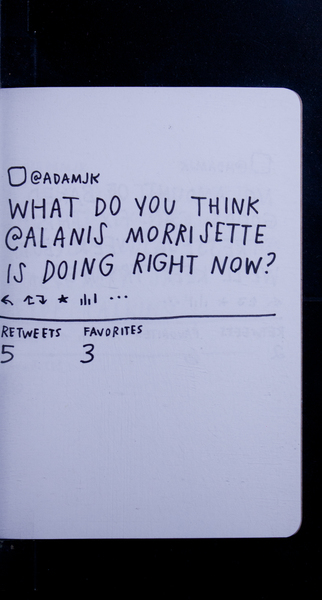 @ADAMJK
WHAT DO YOU THINK
@ALANIS MORRISETTE
IS DOING RIGHT NOW?
RETWEETS FAVORITES
5 3